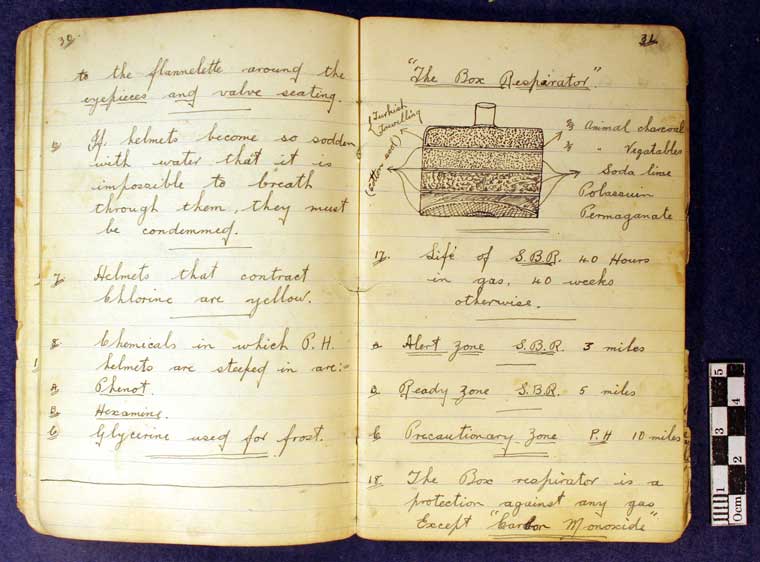 30
to the flannelette around the
eyepieces and valve seating.
6. If helmets become so sodden
with water that it is
impossible to breath
through them, they must
be condemmed.
7. Helmets that contract
Chlorine are yellow.
8. Chemicals in which P.H.
helmets are steeped in are:-
A. Phenot.
B. Hexamine.
C Glycerine used for frost.
31
"The Box Respirator"
Turkish
Towelling
(cotton wool)
2/3 Animal charcoal
1/3 " Vegatables
Soda lime
Potassuim
Permaganate
17. Life of S.B.R. 40 Hours
in gas, 40 weeks
otherwise.
A Alert zone S.B.R. 3 miles
B. Ready zone S.B.R. 5 miles
C Precautionary zone P.H 10 miles
18. The Box respirator is a
protection against any gas
Except "Carbon Monoxide"
0cm 1 2 3 4 5